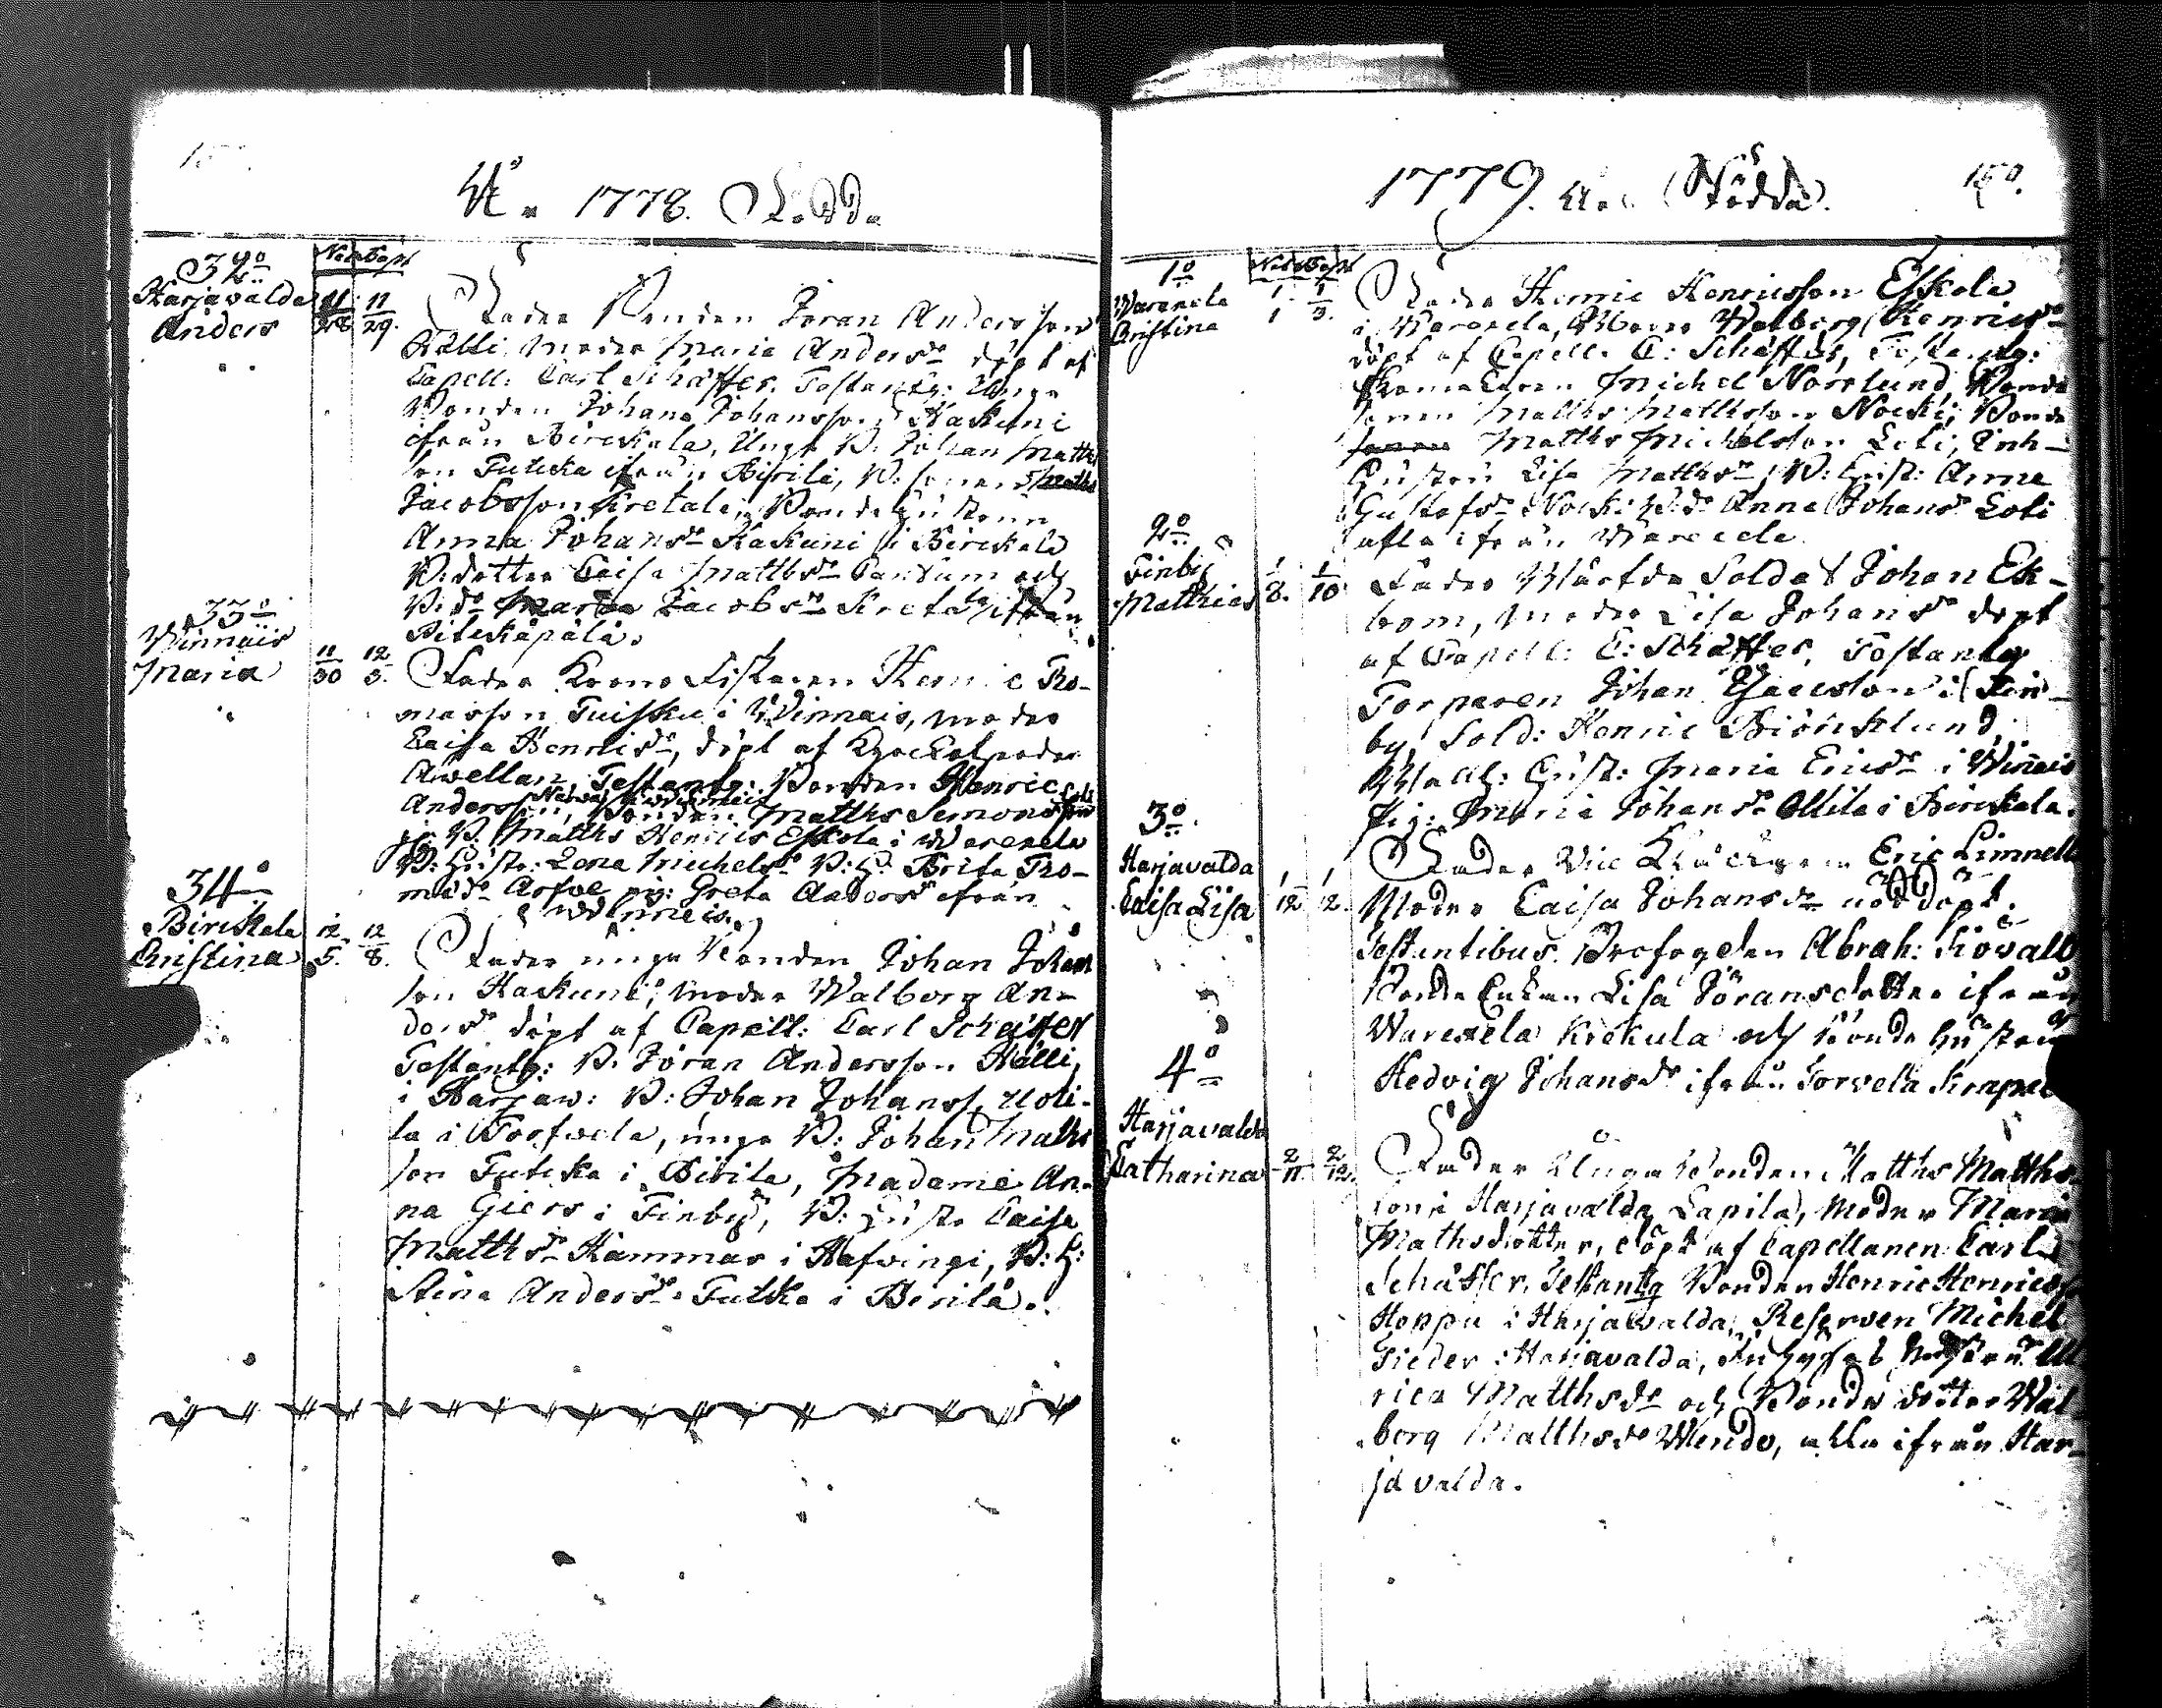 Åo 1778. Födde
32o
Harjavalda
Anders
Nat. Bapt.
11/28 11/29.
Fader Bonden Jöran Andersson
Hälli, Moder Maria Andersdr döpt af
Capell: Carl Schäffer. Testantg: Unga
Bonden Johan Johansson Kaskuni
ifrån Birckala, Unga B. Johan Matths
son Tutka ifrån Birila, B. sonen Matths
Jacobsson Kretala, Bonde Hustrun
Anna Johansdr Kaskuni i Birckala
B: dotter Caisa Matthsdr och
B: dr Maria Jacobsdr Kretala ifrån
33o
Winnais
Maria
11/30 12/3.
Fader Krono Fiskaren Henric Tho-
masson Tuisku i Winnais, moder
Caisa Henricsdr, döpt af Prosten
Awellan Testantg: Bonden Henric
Andersson, Bonden Matths Simonsson
B. Matths Henrics Eskola i Warexela
B: Hustr: Lena Michelsdr B: H: Brita Tho-
madr Greta Andersdr ifrån
Winnais.
34o
Birckala
Christina
12/5. 12/8.
Fader unga Bonden Johan Johans
son Kaskuni, moder Walborg An-
dersdr döpt af Capell: Carl Schäffer
Testantg: B. Jöran Andersson Hälli,
i Harjaw: B: Johan Johanss. Uoti-
la i Torfvela, unga B: Johan Matths
son Tutka i Birila, Madame An-
na Giers i Finby, B: Hustr Caisa
Matthsdr Hammar i Hafvingi, B: H:
Stina Andersdr Tutka i Birila.
1779. Åo Födda. 150.
1o
Warexela
Christina
Nat. Bapt.
1/1 1/3.
Fader Henric Henricsson Eskola
i Warexela, Moder Walborg Henricsdr
döpt af Capell. C: Schäffer, Testantg:
Skomakaren Michel Norrlund, Bonde
sonen Matths Mathsson Nocki, Bonde
sonen Matths Michelsson Loti, Inh-
Hustru Lisa Matthsdr, B: Hust: Anna
Gustafsdr Nocki B: dr Anna Johansdr Loti
alla ifrån Warexela.
2o
Finby
Matthias
1/8. 1/10
Fader Wärfde Soldat Johan Ek-
bom, moder Lisa Johansdr döpt
af Capell: C: Schäffer, Testantg
Torparen Johan i Fin-
by Sold: Henric Biörklund,
Hust: Maria Ericsdr i Winnais
Pig: Maria Johansdr Ollila i Birckala.
3o.
Harjavalda
Caisa Lisa
1/12 1/12.
Fader Vice Klåckaren Eric Limnell
Moder Caisa Johansdr nöddöpt.
Testantibus. Profogden Abrah: Siövall
Bonde Enkan Lisa Jöransdotter ifrån
Warexela Krekula och Bonde hustrun
Hedvig Johansdr ifrån Torvela Knaper
4o
Harjavalda
Catharina
2/11 2/12.
Fader Unga Bonden Matths Matths-
son i Harjavalda Lapila, Moder Maria
Mathsdotter, döpt af Capellanen Carl
Schäffer, Testantg Bonden Henric Henricss
Hoppu i Harjavalda, Reserven Michel
Frieder i Harjavalda, Inhyses Hustrun Ul
rica Matthsdr och Bonde dotter Wal
borg Matthsdr Mendo, alla ifrån Har-
javalda.